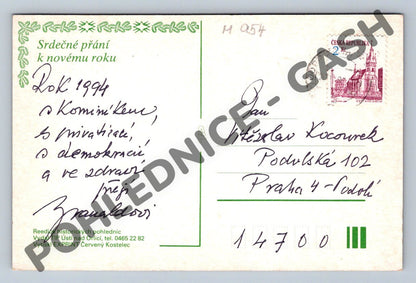 M 954
Srdečné přání
k novému roku
ČESKÁ REPUBLIKA
Rok 1994
s kominíkem,
s privatizací,
s demokracií,
a ve zdraví
přejí
Pan
Vítězslav Kocourek
Podolská 102
Praha 4-Podolí
14700
pohlednic
Ústí nad Orlicí, tel. 0465 22 82
Červený Kostelec
POHLEDNICE - GASH